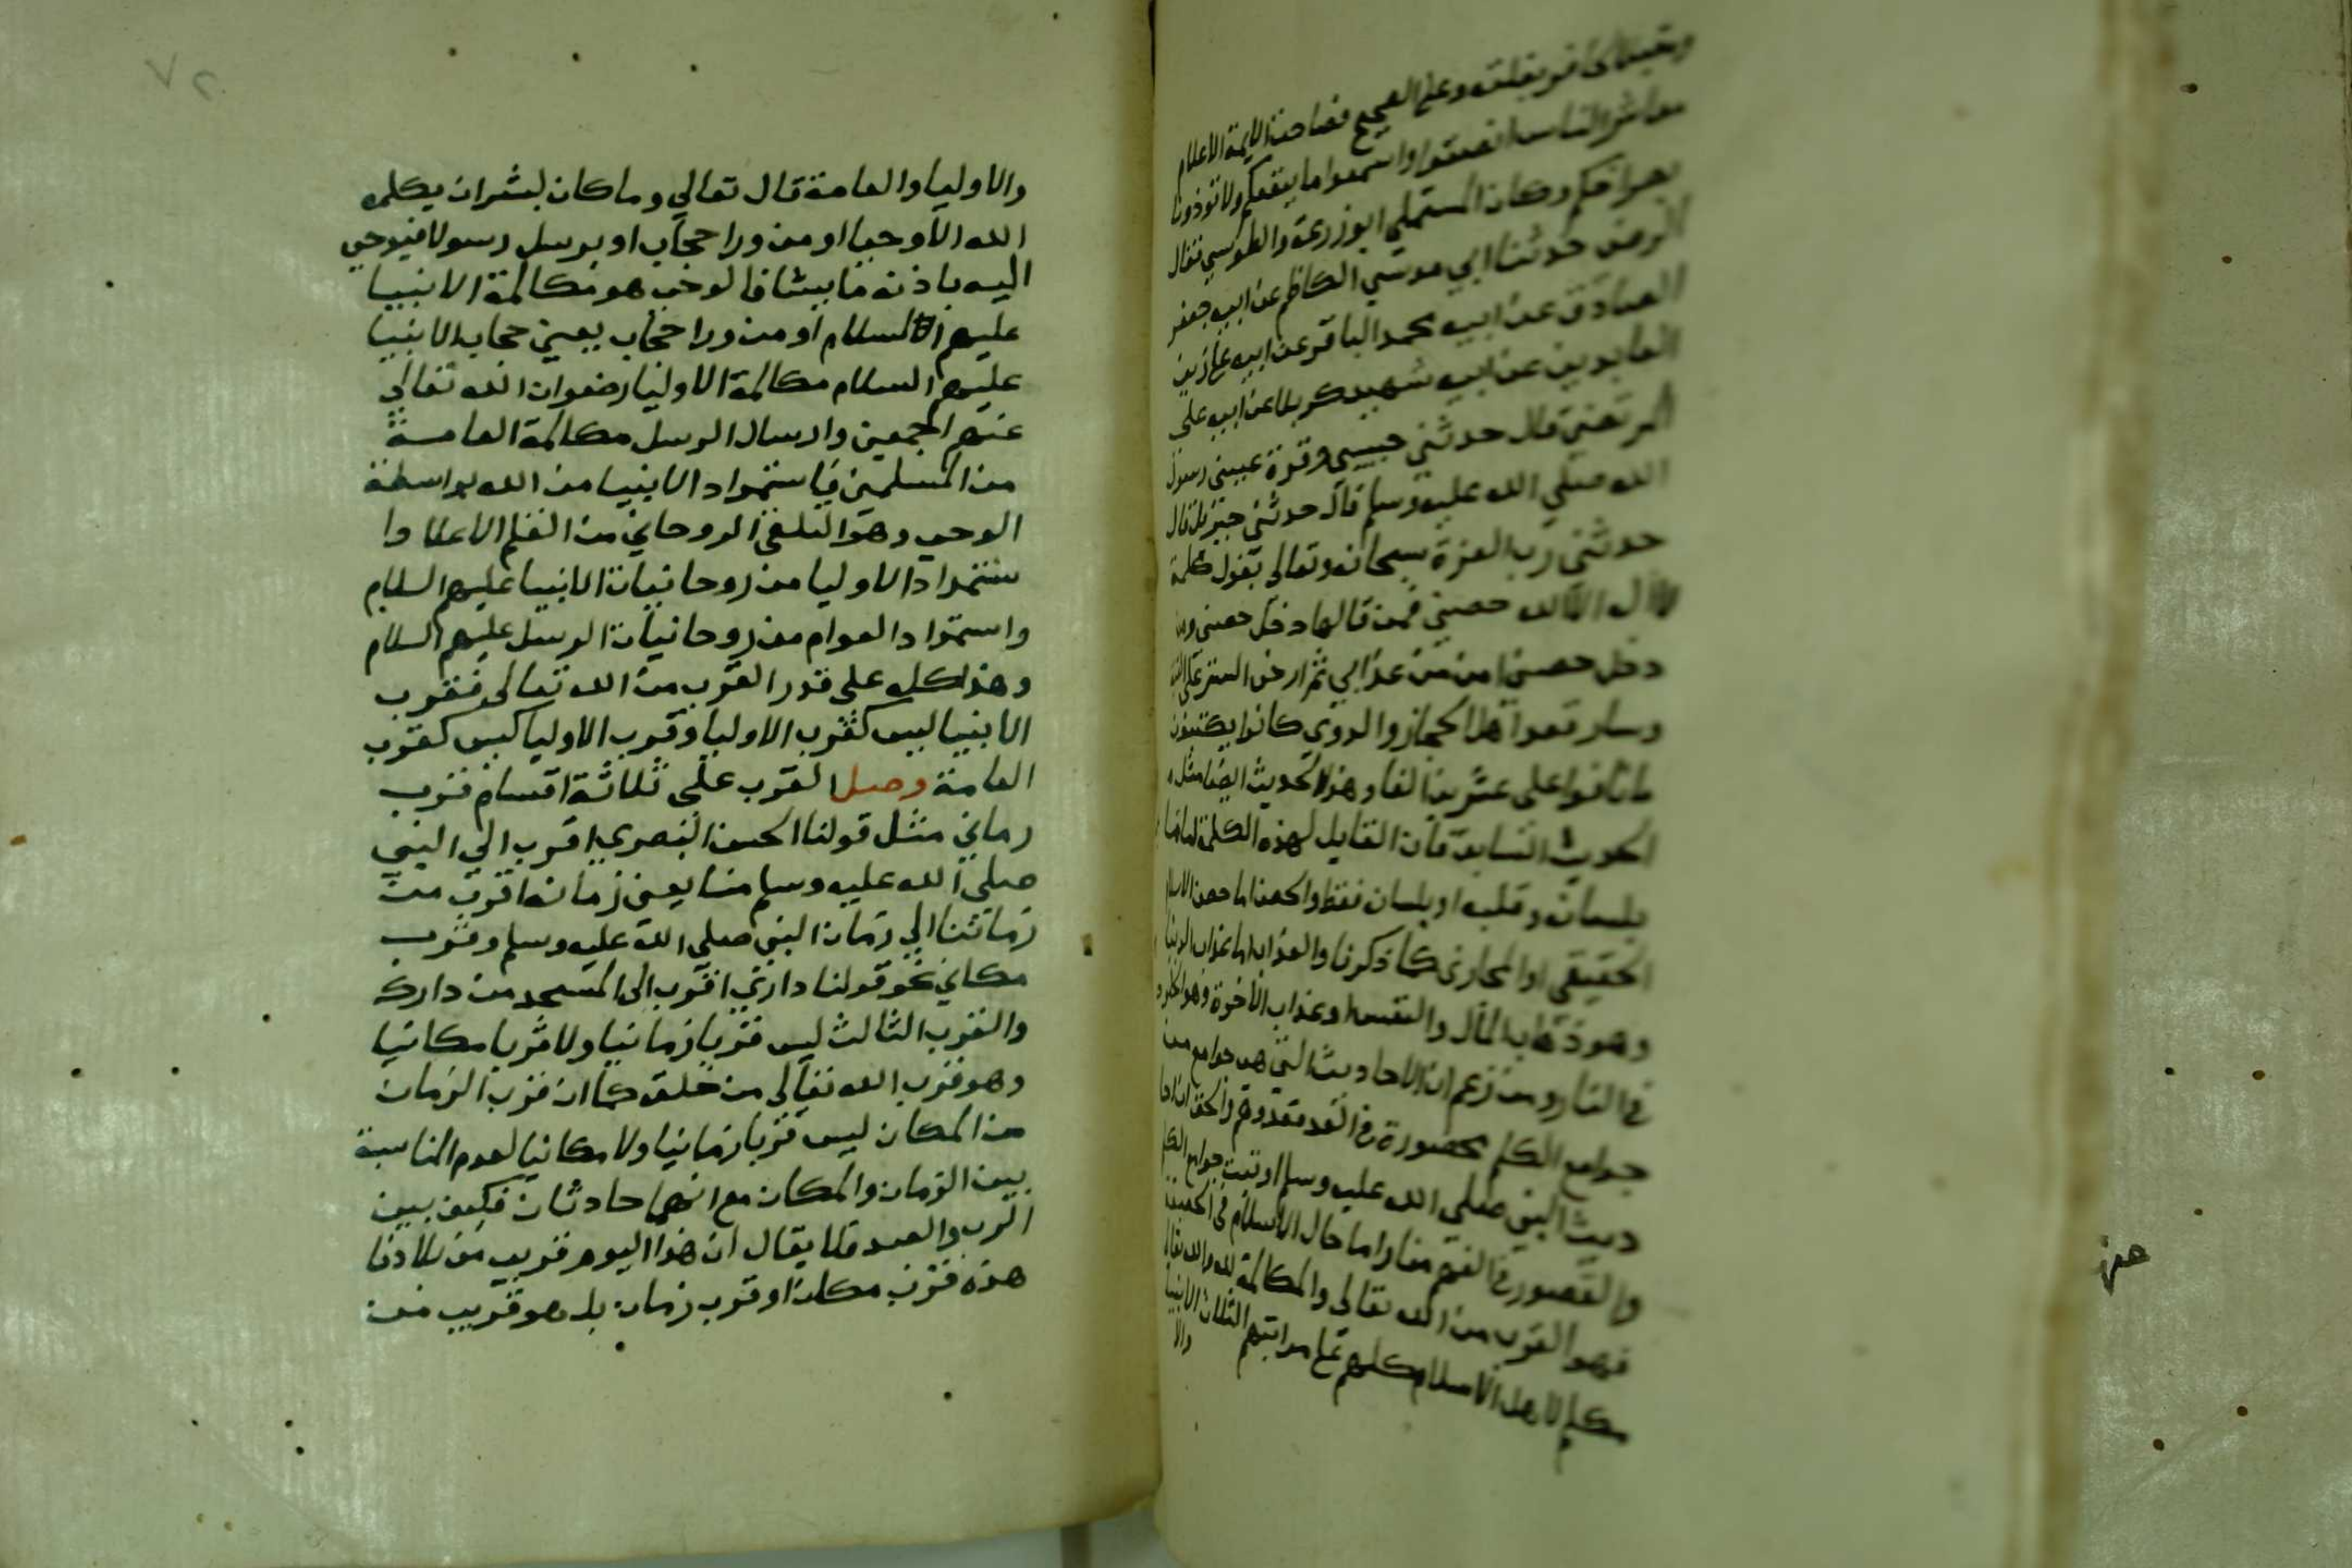 معاشر الناس انصتوا واسمعوا ما ينفعكم ولا تؤذونا
وكان المستملي ابو زرعة والطوسي فقال
حدثنا ابي موسي الكاظم عن ابيه جعفر
الصادق عن ابيه محمد الباقر عن ابيه علي زين
العابدين عن ابيه شهيد كربلا عن ابيه على
المرتضي قال حدثني حبيبي وقرة عيينى رسول
الله صلي الله عليه وسلم قال حدثني جبريل قال
حدثنى رب العزة سبحانه وتعالى يقول كلمة
لا اله الا الله حصني فمن قالها دخل حصنى ومن
دخل حصنى امن من عذابي ثم ارخى الستر على
وسار فعدوا اهل والدوي كانوا يكتبون
على عشرين الفا وهذا الحديث ايضا مثل
الحديث السابق فان القايل لهذه الكلمة
بلسانه وقلبه او بلسان فقط والحصن اما حصن
الحقيقي او المجازى كما ذكرنا والعذاب اما عذاب الدنيا
وهو ذهاب المال والنفس او عذاب الآخرة وهو
في النار ومن زعم ان الاحاديث التي هي جوامع من
جوامع الكلم محصورة في العد فقد وهم
ديث النبي صلي الله عليه وسلم اوتيت جوامع الكلم
والقصور في الفهم منا واما حال الاسلام في الحقيقة
فهو القرب من الله تعالى والمكالمة لله والله تعالى
يكلم لاهل الاسلام كلهم على مراتبهم الثلاث الانبيا
والا
٧٢
والاوليا والعامة قال تعالي وما كان لبشر ان يكلمه
الله الا وحيا او من ورا حجاب او يرسل رسولا فيوحي
اليه باذنه ما يشا فالوحي هو مكالمة الانبيا
عليهم السلام او من ورا حجاب يعني حجاب الانبيا
عليهم السلام مكالمة الاوليا رضوان الله تعالى
عنهم اجمعين وارسال الرسل مكالمة العامة
من المسلمين فاستمداد الانبيا من الله بواسطة
الوحي وهو التلقي الروحاني من القلم الاعلا وا
ستمداد الاوليا من روحانيات الانبيا عليهم السلام
واستمداد العوام من روحانيات الرسل عليهم السلام
وهذا كله على قدر القرب من الله تعالى فقرب
الانبيا ليس كقرب الاوليا وقرب الاوليا ليس كقرب
العامة وصل القرب على ثلاثة اقسام قرب
زماني مثل قولنا الحسن البصري اقرب الي النبي
صلي الله عليه وسلم منا يعني زمانه اقرب من
زماننا الي زمان النبي صلى الله عليه وسلم وقرب
مكاني نحو قولنا داري اقرب الى المسجد من دارك
والقرب الثالث ليس قربا زمانيا ولا قربا مكانيا
وهو قرب الله تعالي من خلقه كما ان قرب الزمان
من المكان ليس قربا زمانيا ولا مكانيا لعدم المناسبة
بين الزمان والمكان مع انهما حادثان فكيف بين
الرب والعبد فلا يقال ان هذا اليوم قريب من بلادنا
هذه قرب مكان او قرب زمان بل هو قريب من